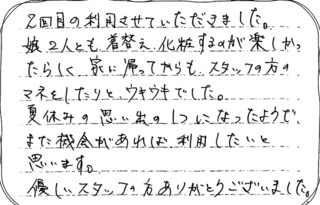 2回目の利用させていただきました。
娘2人とも、着替え、化粧するのが楽しかっ
たらしく、家に帰ってからも、スタッフの方の
マネをしたりと、ウキウキでした。
夏休みの思い出の1つになったようで、
また機会があれば、利用したいと
思います。
優しいスタッフの方ありがとうございました。